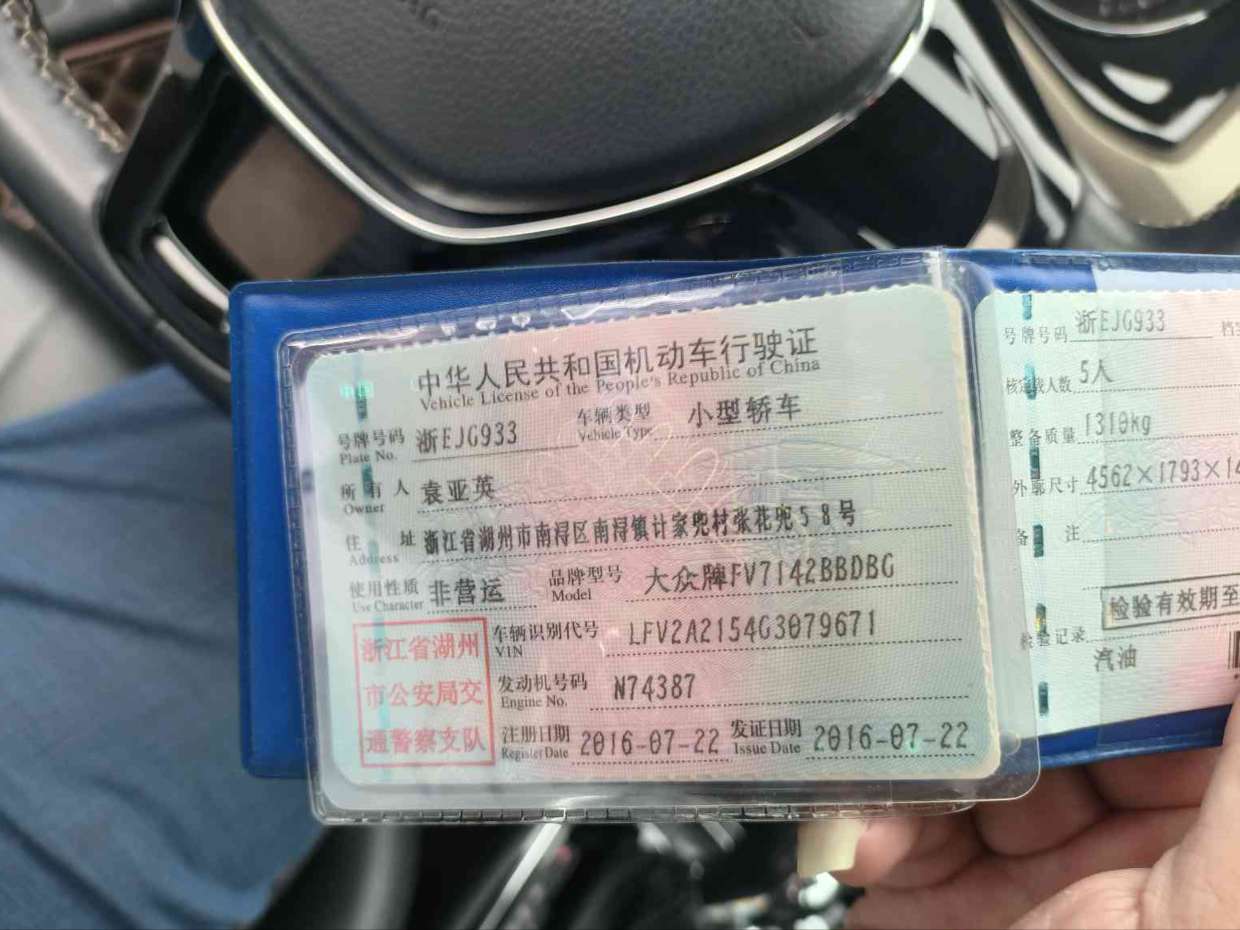 中华人民共和国机动车行驶证
Vehicle License of the People's Republic of China
号牌号码 浙EJG933 车辆类型 小型轿车
Plate No. Vehicle Type
所有人 袁亚英
Owner
住址 浙江省湖州市南浔区南浔镇计家兜村张花兜58号
Address
使用性质 非营运 品牌型号 大众牌FV7142BBDBG
Use Character Model
浙江省湖州市公安局交通警察支队
车辆识别代号 LFV2A2154G3079671
VIN
发动机号码 N74387
Engine No.
注册日期 2016-07-22 发证日期 2016-07-22
Register Date Issue Date
号牌号码 浙EJG933
核定载人数 5人
整备质量 1310kg
外廓尺寸 4562×1793×14
备注
检验有效期至
检验记录
汽油